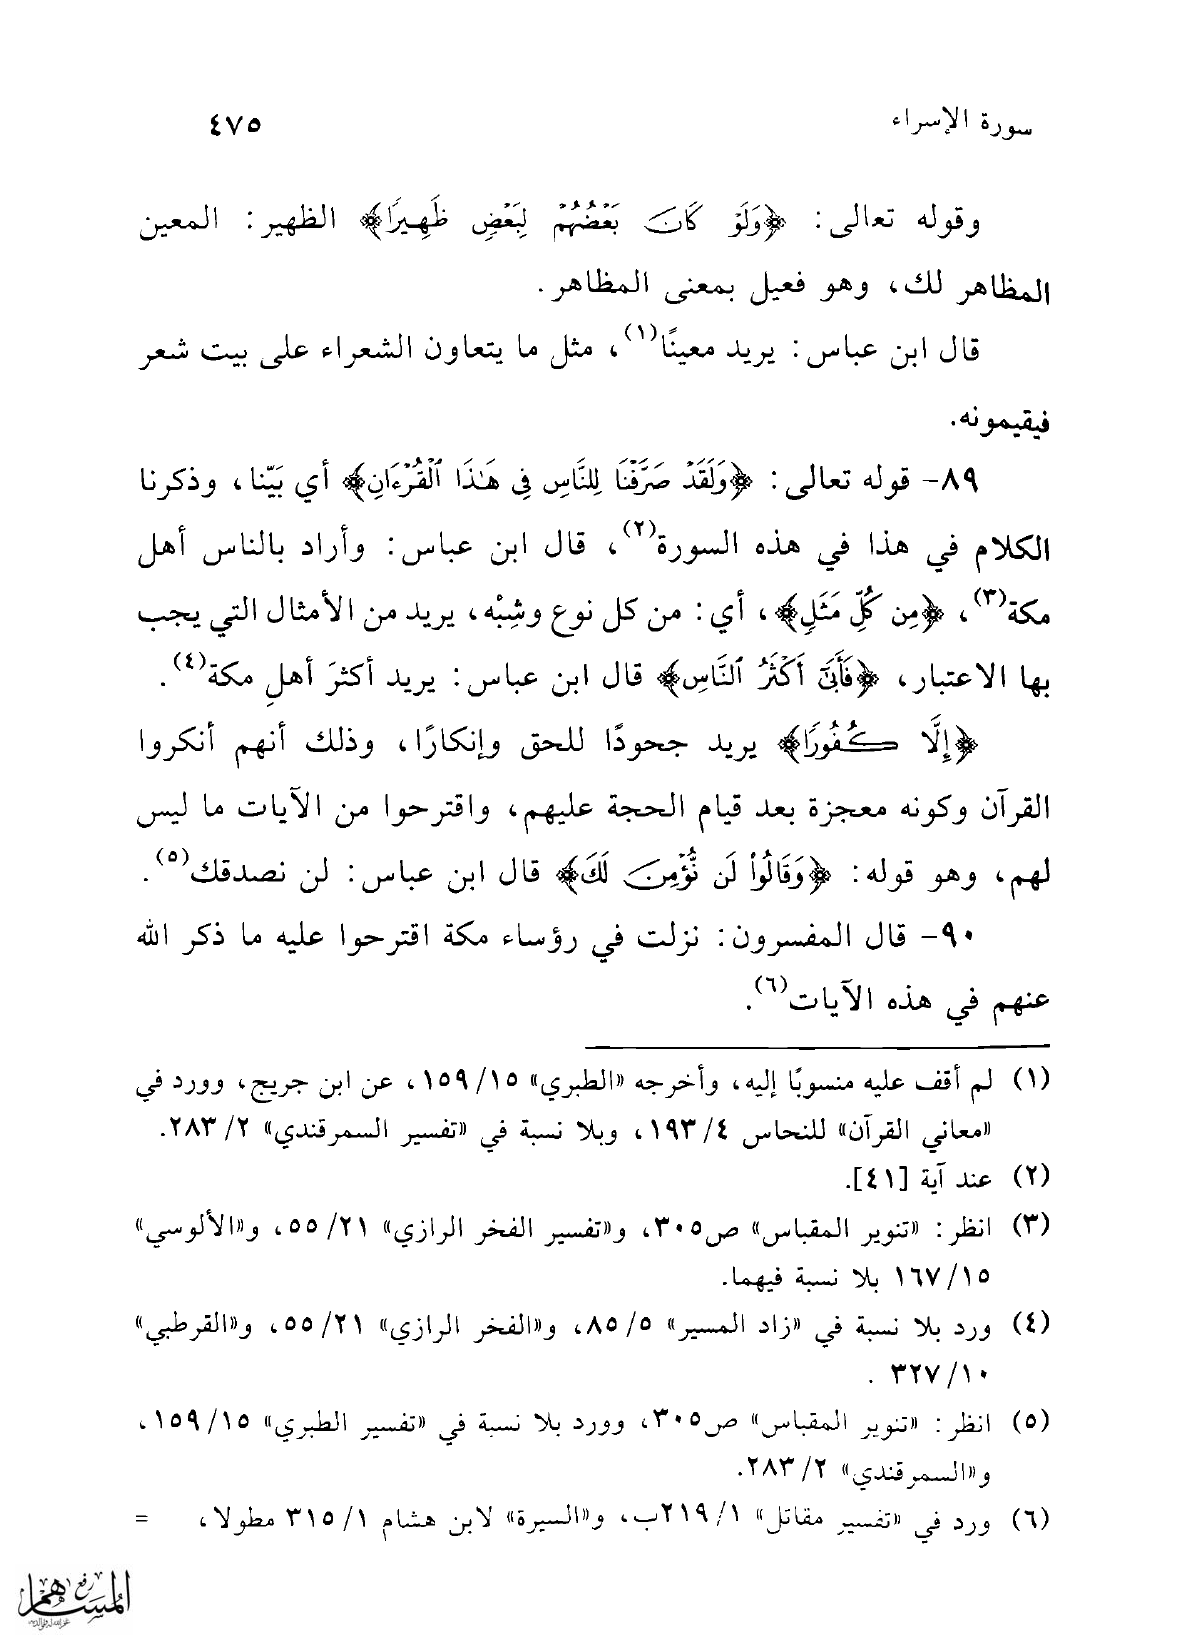 سورة الإسراء ٤٧٥
وقوله تعالى: ﴿وَلَوْ كَانَ بَعْضُهُمْ لِبَعْضٍ ظَهِيرًا﴾ الظهير: المعين
المظاهر لك، وهو فعيل بمعنى المظاهر.
قال ابن عباس: يريد معينًا(١)، مثل ما يتعاون الشعراء على بيت شعر
فيقيمونه.
٨٩- قوله تعالى: ﴿وَلَقَدْ صَرَّفْنَا لِلنَّاسِ فِي هَٰذَا الْقُرْءَانِ﴾ أي بَيّنا، وذكرنا
الكلام في هذا في هذه السورة(٢)، قال ابن عباس: وأراد بالناس أهل
مكة(٣)، ﴿مِن كُلِّ مَثَلٍ﴾، أي: من كل نوع وشِبْه، يريد من الأمثال التي يجب
بها الاعتبار، ﴿فَأَبَىٰٓ أَكْثَرُ ٱلنَّاسِ﴾ قال ابن عباس: يريد أكثرَ أهلِ مكة(٤).
﴿إِلَّا كُفُورًا﴾ يريد جحودًا للحق وإنكارًا، وذلك أنهم أنكروا
القرآن وكونه معجزة بعد قيام الحجة عليهم، واقترحوا من الآيات ما ليس
لهم، وهو قوله: ﴿وَقَالُوا۟ لَن نُّؤْمِنَ لَكَ﴾ قال ابن عباس: لن نصدقك(٥).
٩٠- قال المفسرون: نزلت في رؤساء مكة اقترحوا عليه ما ذكر الله
عنهم في هذه الآيات(٦).
(١) لم أقف عليه منسوبًا إليه، وأخرجه «الطبري» ١٥/١٥٩، عن ابن جريج، وورد في
«معاني القرآن» للنحاس ٤/١٩٣، وبلا نسبة في «تفسير السمرقندي» ٢/٢٨٣.
(٢) عند آية [٤١].
(٣) انظر: «تنوير المقباس» ص٣٠٥، و«تفسير الفخر الرازي» ٢١/٥٥، و«الألوسي»
١٥/١٦٧ بلا نسبة فيهما.
(٤) ورد بلا نسبة في «زاد المسير» ٥/٨٥، و«الفخر الرازي» ٢١/٥٥، و«القرطبي»
١٠/٣٢٧ .
(٥) انظر: «تنوير المقباس» ص٣٠٥، وورد بلا نسبة في «تفسير الطبري» ١٥/١٥٩،
و«السمرقندي» ٢/٢٨٣.
(٦) ورد في «تفسير مقاتل» ١/٢١٩ب، و«السيرة» لابن هشام ١/٣١٥ مطولا، =
رفع
المساهم